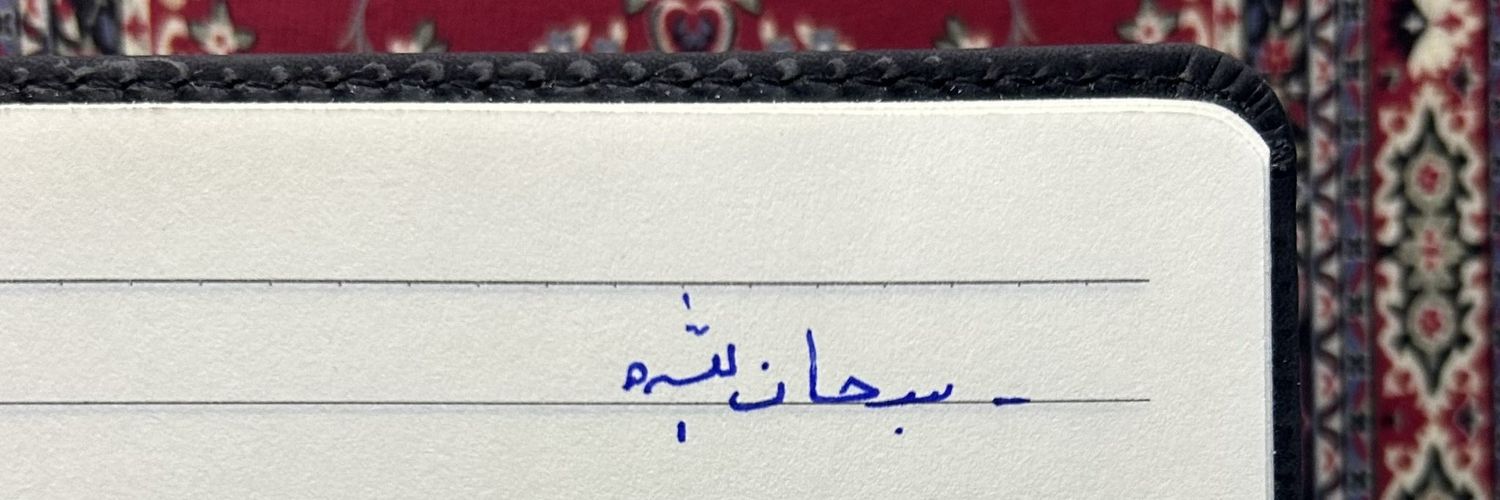 - سبحان للّٰه